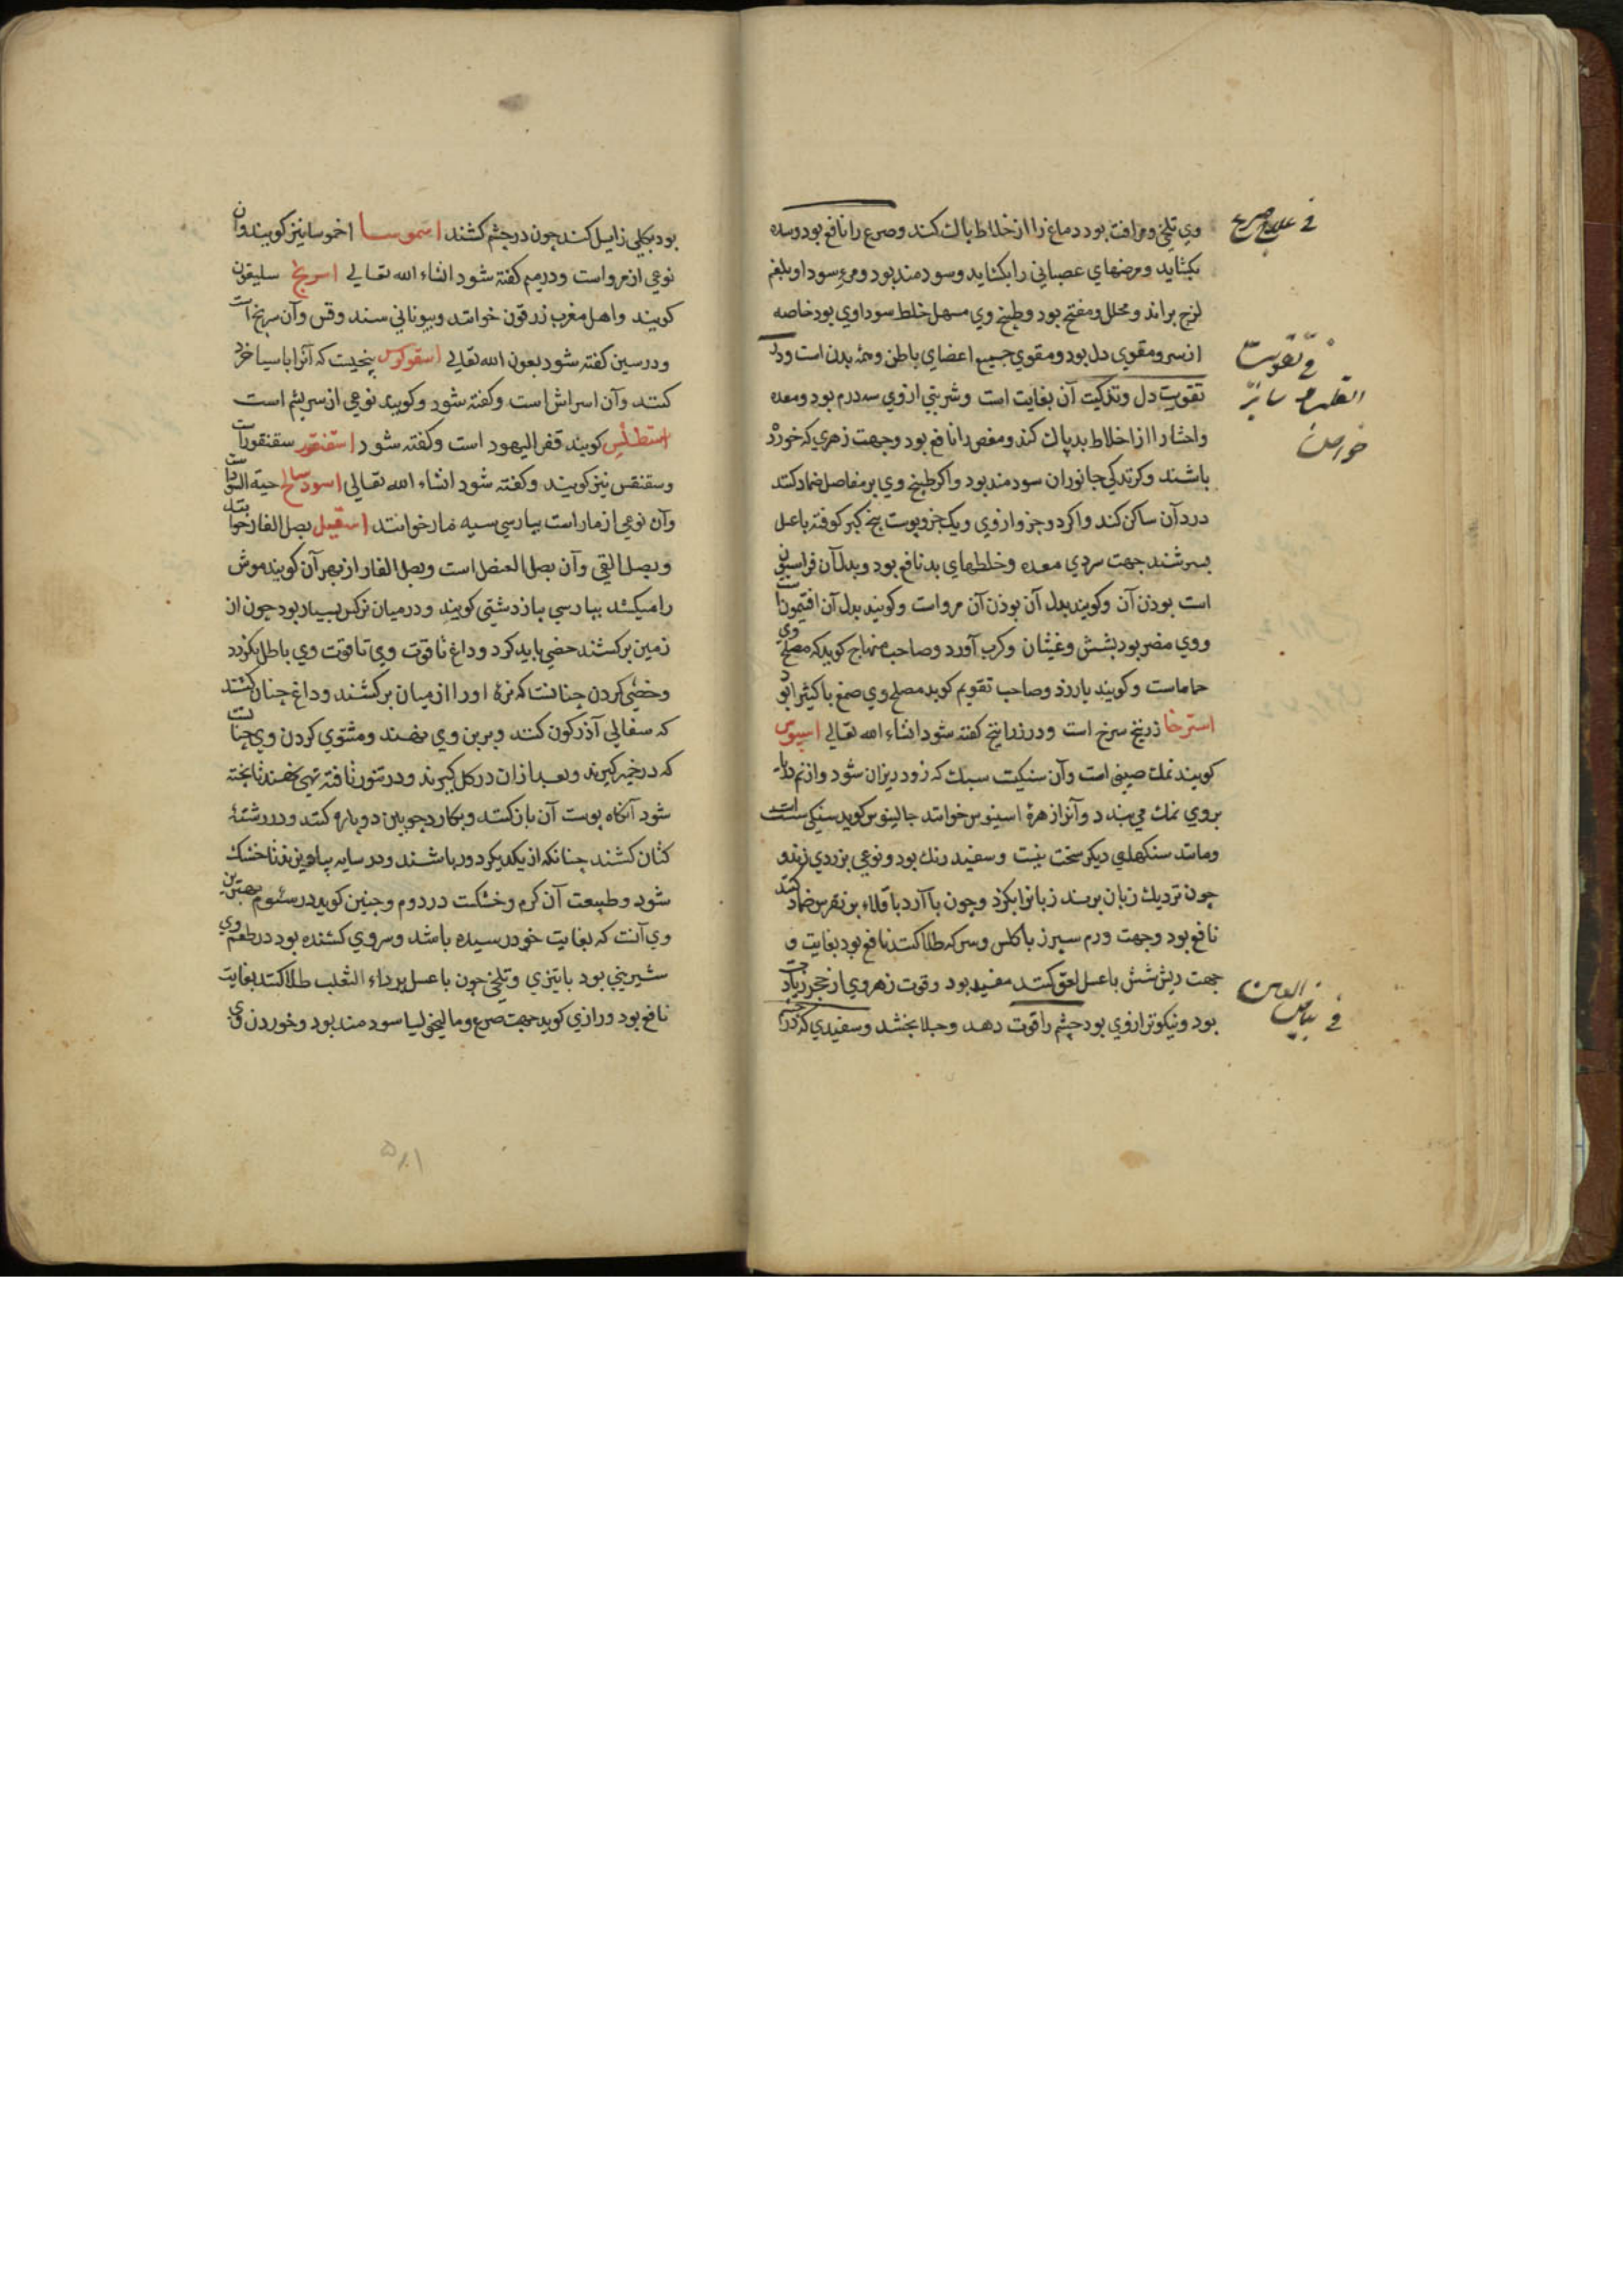 في علاج صرع
وي تلخي و مرافت بود دماغ را از خلاط پاك كند و صرع را نافع بود و سده
بكشايد و مرضهاي عصباني را بكشايد و سودمند بود و مره سودا و بلغم
لزج براند و محلل و مفتح بود و طبخ وي مسهل خلط سوداوي بود خاصه
از سر و مقوي دل بود و مقوي جميع اعضاي باطن و همه بدن است و در
في تقويت القلب
تقويت دل و تذكيت آن بغايت است و شربتي از وي سه درم بود و معده
و احشا را از اخلاط بد پاك كند و مغص را نافع بود و جهت زهري كه خورد
باشند و كزندكي جانوران سودمند بود و اكر طبخ وي بر مفاصل ضماد كنند
درد آن ساكن كند و اكر دو جزو از وي و يك جزو پوست بيخ كبر كوفته با عسل
بسرشند جهت سردي معده و خلطهاي بد نافع بود و بدل آن فراسيون
است بوذن آن و كويند بدل آن بوذن آن مرو است و كويند بدل آن افتيمون است
و وي مضر بود بشش و غثيان و كرب آورد و صاحب منهاج كويد كه مصلح وي
حماماست و كويند بارزد و صاحب تقويم كويد مصلح وي صمغ با كثيرا بود
استرخا زرنيخ سرخ است و در زرانيخ كفته شود انشاء الله تعالي اسيوس
كويند نمك صيني است و آن سنكيست سبك كه زود ريزان شود و از نم دريا
بروي نمك مي بندد و آنرا زهرهٔ اسيوس خوانند جالينوس كويد سنكي است
و مانند سنكهاي ديكر سخت نيست و سفيد رنك بود و نوعي بزردي زند و
چون نزديك زبان برسند زبانرا بكزد و چون با آرد باقلاء بر نقرس ضماد كنند
نافع بود و جهت ورم سپرز با كلس و سركه طلا كنند نافع بود بغايت و
جهت ريش شش با عسل لعق كنند مفيد بود و قوت زهر وي از حجر زيادت
في بياض العين
بود و نيكوتر از وي بود چشم را قوت دهد و جلا بخشد و سفيدي كه در چشم
بود بكلي زايل كند چون در چشم كشند اسموسا اخموسا نيز كويند و آن
نوعي از مرو است و در ميم كفته شود انشاء الله تعالي اسرنج سليقون
كويند و اهل مغرب زرقون خوانند و بيوناني سندوقس و آن سرنج است
و در سين كفته شود بعون الله تعالي اسقوكوس بيخيست كه آنرا با سيا خرد
كنند و آن اسراش است و كفته شود و كويند نوعي از سريشم است
اسقطلس كويند قفر اليهود است و كفته شود اسقنقور سقنقور است
و سقنقس نيز كويند و كفته شود انشاء الله تعالي اسود سالح حية السودا است
و آن نوعي از مار است بپارسي سيه مار خوانند اسقيل بصل الفار خوانند
و بصل القي و آن بصل العنصل است و بصل الفار از بهر آن كويند موش
را ميكشد بپارسي پياز دشتي كويند و در ميان نركس بسيار بود چون از
زمين بركشند خصي بايد كرد و داغ تا قوت وي تا قوت وي باطل نكردد
و خصي كردن چنانست كه نرهٔ او را از ميان بركشند و داغ چنان كنند
كه سفالي آذركون كنند و بر بن وي نهند و مشوي كردن وي چنانست
كه در خمير كيرند و بعد از ان در كل كيرند و در تنور تافته تهي نهند تا پخته
شود آنكاه پوست آن باز كنند و بكارد چوبين دو پاره كنند و در رشتهٔ
كتان كشند چنانكه از يكديكر دور باشند و در سايه بياويزند تا خشك
شود و طبيعت آن كرم و خشكست در دوم و چنين كويد در سئوم بهترين
وي آنست كه بغايت خود رسيده باشد و سر وي كشنده بود در طعم وي
شيريني بود با تيزي و تلخي چون با عسل بر داء الثعلب طلا كنند بغايت
نافع بود و رازي كويد جهت صرع و ماليخوليا سودمند بود و خوردن وي